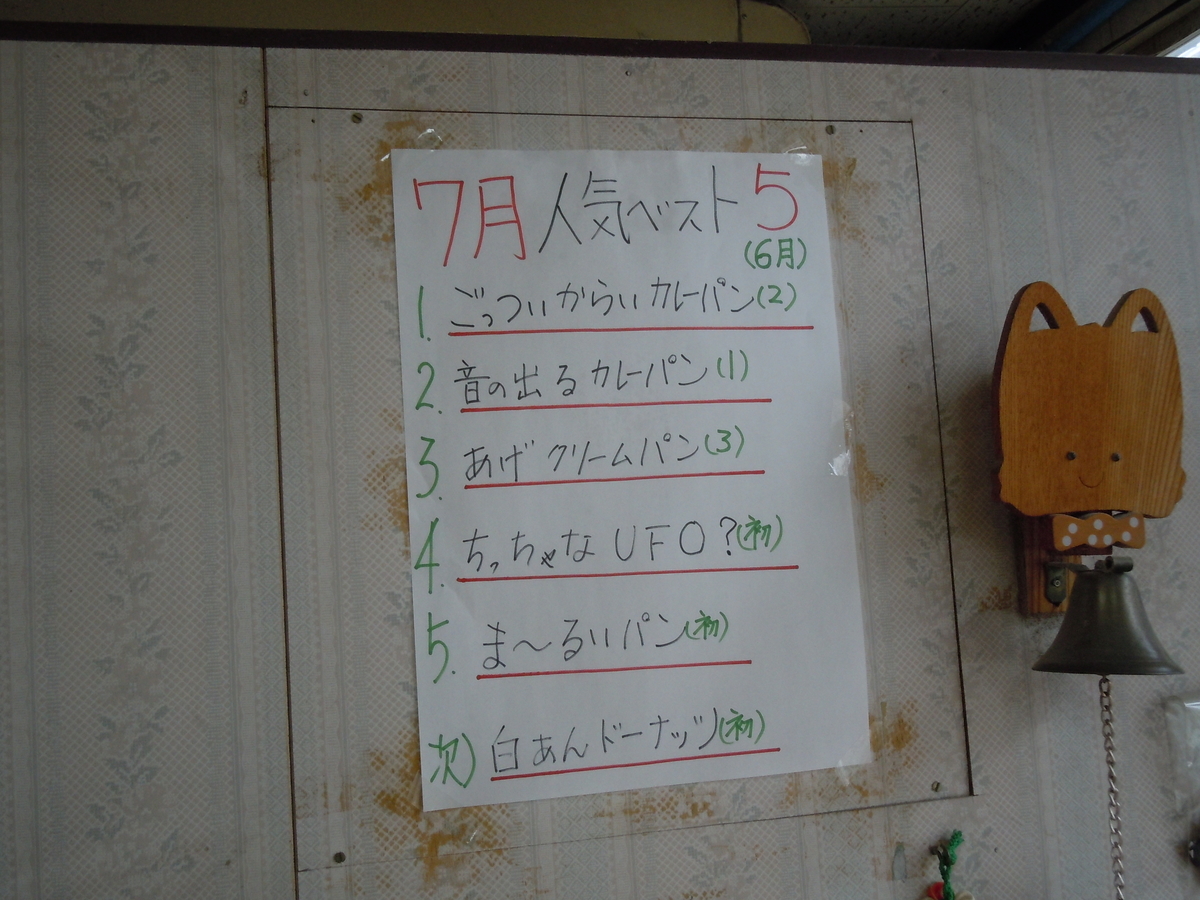 7月人気ベスト5
(6月)
1. ごっついからいカレーパン(2)
2. 音の出るカレーパン(1)
3. あげクリームパン(3)
4. ちっちゃなUFO?(初)
5. ま〜るいパン(初)
次) 白あんドーナッツ(初)